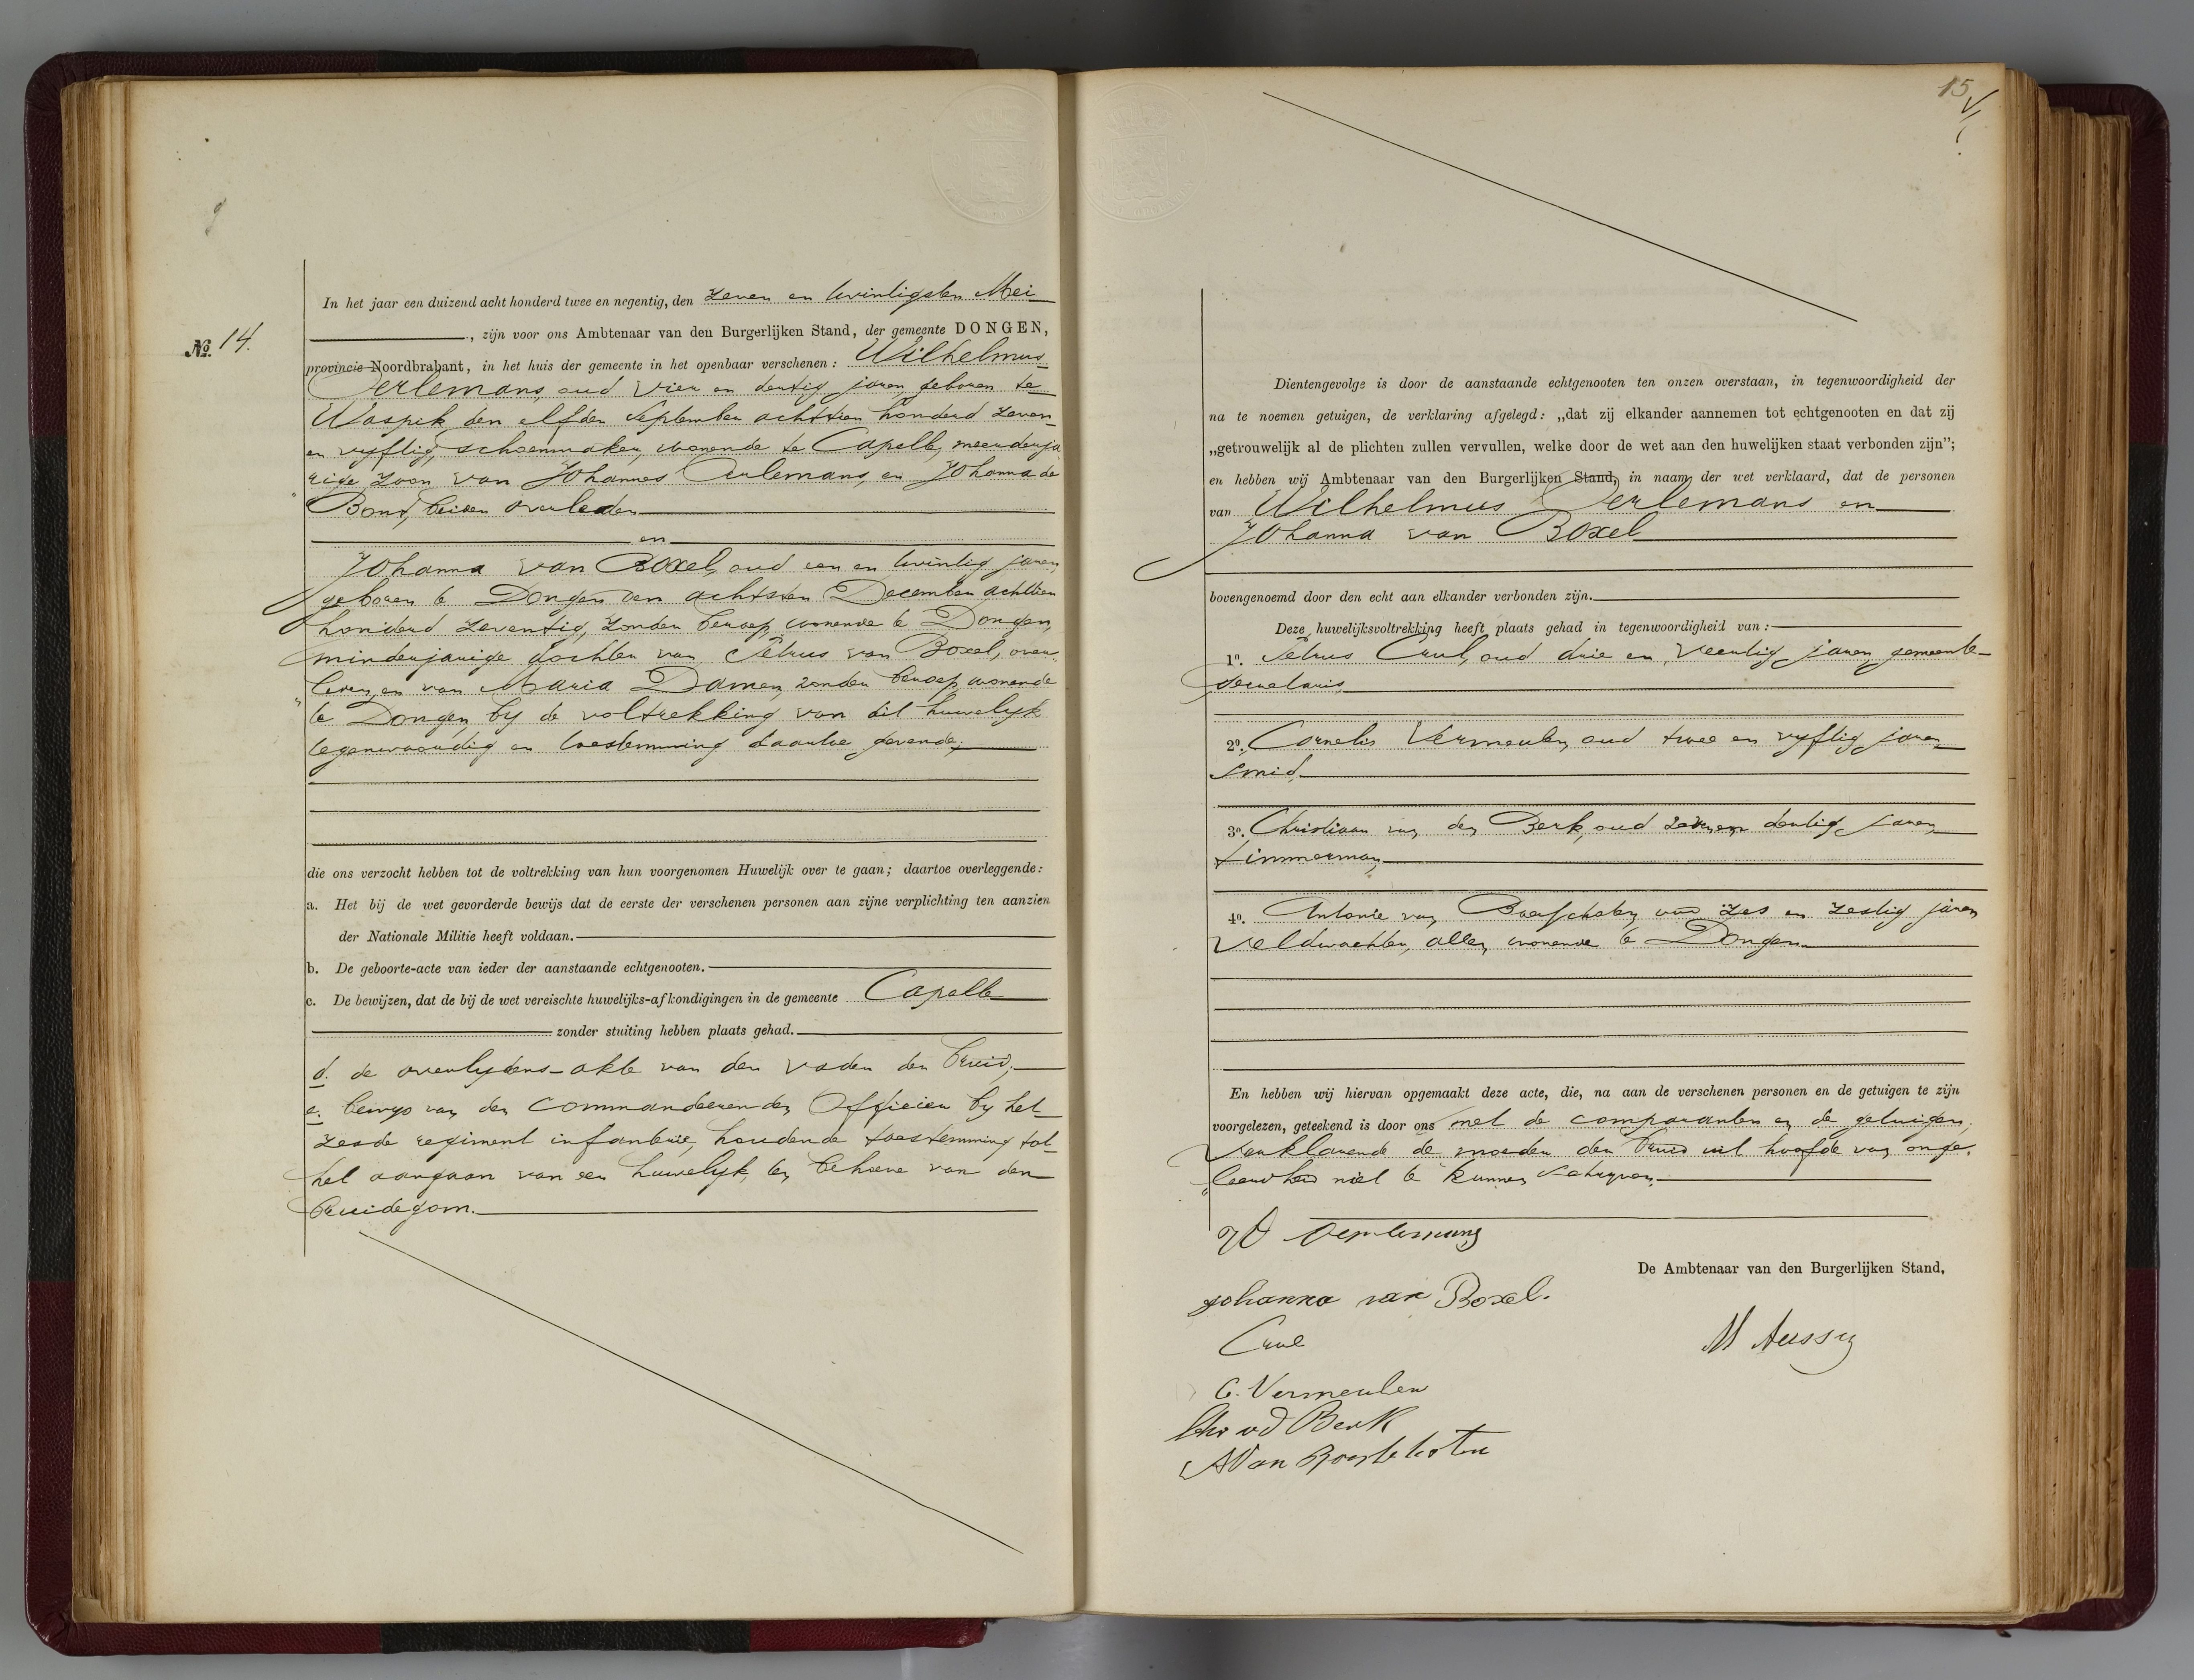 In het jaar een duizend acht honderd twee en negentig, den zeven en twintigsten Mei
, zijn voor ons Ambtenaar van den Burgerlijken Stand, der gemeente DONGEN,
No. 14.
provincie Noordbrabant, in het huis der gemeente in het openbaar verschenen: Wilhelmus
Oerlemans, oud vier en dertig jaren, geboren te
Waspik den elfden September achttien honderd zeven
en vyftig, schoenmaker, wonende te Capelle, meerderja
rige zoon van Johannes Oerlemans, en Johanna de
Bont, beiden overleden
en
Johanna van Boxel, oud een en twintig jaren,
geboren te Dongen den achtsten December achttien
honderd zeventig, zonder beroep, wonende te Dongen,
minderjarige dochter van Petrus van Boxel, over-
leden, en van Maria Damen, zonder beroep, wonende
te Dongen, by de voltrekking van dit huwelyk
tegenwoordig en toestemming daartoe gevende;
die ons verzocht hebben tot de voltrekking van hun voorgenomen Huwelijk over te gaan; daartoe overleggende:
a. Het bij de wet gevorderde bewijs dat de eerste der verschenen personen aan zijne verplichting ten aanzien
der Nationale Militie heeft voldaan.
b. De geboorte-acte van ieder der aanstaande echtgenooten.
c. De bewijzen, dat de bij de wet vereischte huwelijks-afkondigingen in de gemeente Capelle
zonder stuiting hebben plaats gehad.
d. de overlydens-akte van den vader der bruid;
e. bewys van den commandeerenden Officier by het
zesde regiment infanterie, houdende toestemming tot
het aangaan van een huwelyk, ten behoeve van den
bruidegom.
15
Dientengevolge is door de aanstaande echtgenooten ten onzen overstaan, in tegenwoordigheid der
na te noemen getuigen, de verklaring afgelegd: „dat zij elkander aannemen tot echtgenooten en dat zij
„getrouwelijk al de plichten zullen vervullen, welke door de wet aan den huwelijken staat verbonden zijn”;
en hebben wij Ambtenaar van den Burgerlijken Stand, in naam der wet verklaard, dat de personen
van Wilhelmus Oerlemans en
Johanna van Boxel
bovengenoemd door den echt aan elkander verbonden zijn.
Deze huwelijksvoltrekking heeft plaats gehad in tegenwoordigheid van:
1o. Petrus Crul, oud drie en veertig jaren, gemeente-
secretaris,
2o. Cornelis Vermeulen, oud twee en vyftig jaren,
smid,
3o. Christiaan van den Berk, oud zeven en dertig jaren,
timmerman,
4o. Antonie van oud zes en zestig jaren
veldwachter, allen wonende te Dongen.
En hebben wij hiervan opgemaakt deze acte, die, na aan de verschenen personen en de getuigen te zijn
voorgelezen, geteekend is door ons met de comparanten en de getuigen,
verklarende de moeder der bruid uit hoofde van onge-
leerdheid niet te kunnen schryven.
W Oerlemans
De Ambtenaar van den Burgerlijken Stand,
Johanna van Boxel.
Crul
C. Vermeulen
Chr vd Berk
A Van